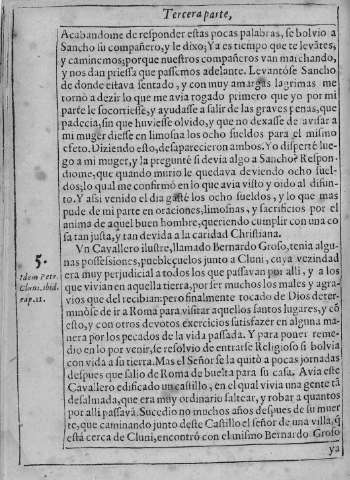 Tercera parte,
Acabandome de responder estas pocas palabras, se bolvio a
Sancho su compañero, y le dixo; Ya es tiempo que te levãtes,
y caminemos; porque nuestros compañeros van marchando,
y nos dan priessa que passemos adelante. Levantóse Sancho
de donde estava sentado, y con muy amargas lagrimas me
tornò a dezir lo que me avia rogado primero que yo por mi
parte le socorriesse, y ayudasse a salir de las graves penas, que
padecia, sin que huviesse olvido, y que no dexasse de avisar a
mi muger diesse en limosna los ocho sueldos para el mismo
efeto. Diziendo esto, desaparecieron ambos. Yo disperté lue-
go a mi muger, y la preguntè si devia algo a Sancho? Respon-
diome, que quando murio le quedava deviendo ocho suel-
dos; lo qual me confirmó en lo que avia visto y oido al difun-
to. Y assi venido el dia gasté los ocho sueldos, y lo que mas
pude de mi parte en oraciones, limosnas, y sacrificios por el
anima de aquel buen hombre, queriendo cumplir con una co
sa tan justa, y tan devida a la caridad Christiana.
Un Cavallero ilustre, llamado Bernardo Groso, tenia algu-
nas possessiones, pueblecuelos junto a Cluni, cuya vezindad
era muy perjudicial a todos los que passavan por alli, y a los
que vivian en aquella tierra, por ser muchos los males y agra-
vios que del recibian: pero finalmente tocado de Dios deter-
minòse de ir a Roma para visitar aquellos santos lugares, y cõ
esto, y con otros devotos exercicios satisfazer en alguna ma-
nera por los pecados de la vida passada. Y para poner reme-
dio en lo por venir, le resolvio de entrarse Religioso si bolvia
con vida a su tierra. Mas el Señor se la quitò a pocas jornadas
despues que salio de Roma de buelta para su casa. Avia este
Cavallero edificado un castillo, en el qual vivia una gente tã
desalmada, que era muy ordinario saltear, y robar a quantos
por alli passavã. Sucedio no muchos años despues de su muer
te, que caminando junto deste Castillo el señor de una villa, q̃
està cerca de Cluni, encontró con el mismo Bernardo Groso
ya
5.
Idem Petr.
Cluni. ibid.
cap. 11.